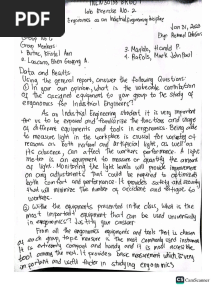 PDF
Lab Exercise No. 2
Ergonomics as an Industrial Engineering Discipline
Jan 31, 2020
Group No. 6
Group Members:
1. Butac, Kristel Ann
3. Harold P.
2. Rhea Greeng A.
Mark John Paul
Data and Results
Using the general report, answer the following Questions:
① In your own opinion, what is the valuable contribution
of the assigned equipment to your group to the study of
ergonomics for Industrial Engineers?
As an Industrial Engineering student, it is very important
for us to be exposed and familiarize the functions and usage
of different equipments and tools in ergonomics. Being able
to measure light in the workplace is crucial for variety of
reasons as both natural and artificial light, as well as
its absence, can affect the workers performance. A light
meter is an equipment to measure or quantify the amount
of light. Monitoring the light levels will provide
any adjustments that could be required to optimized
both comfort and performance. It provides safety and security
that will minimize the number of accident and
② Among the equipments presented in the class, what is the
most important equipment that can be used universally
in ergonomics? Justify your answer.
From all the ergonomics equipments and tools that is shown
each group, tape measure is the most commonly used instrument
is extremely compact and handy and it is most accessible
among the rest. It provides basic measurement which is very
important and useful factor in studying ergonomics.
CS CamScanner